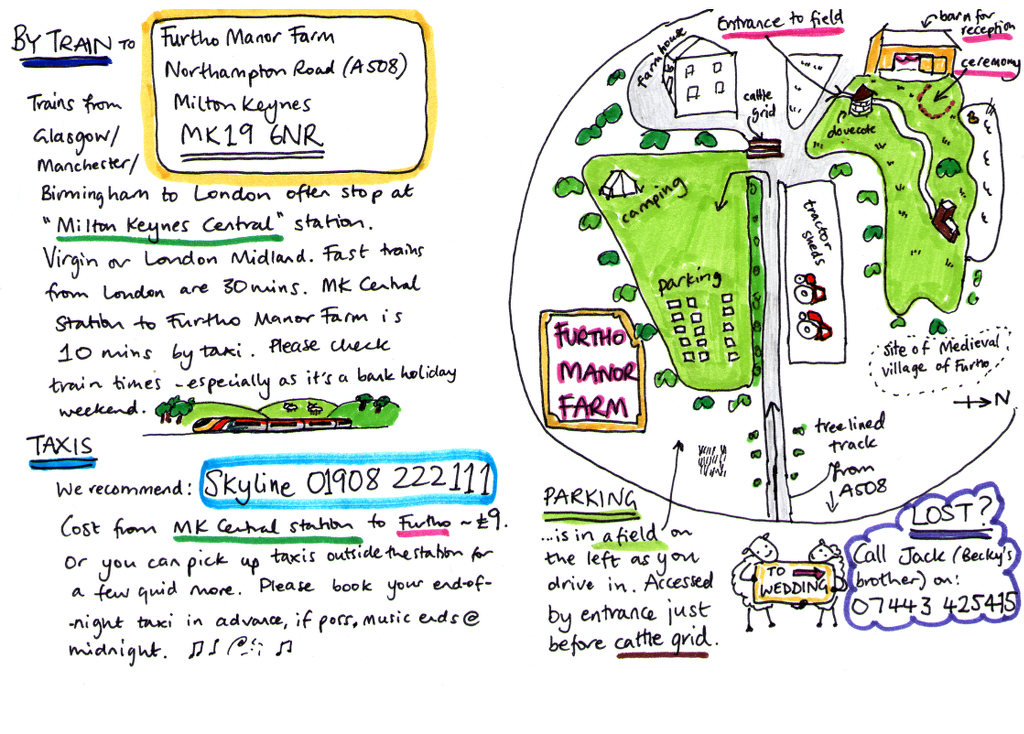 BY TRAIN TO
Furtho Manor Farm
Northampton Road (A508)
Milton Keynes
MK19 6NR
Trains from
Glasgow/
Manchester/
Birmingham to London often stop at
"Milton Keynes Central" station.
Virgin or London Midland. Fast trains
from London are 30 mins. MK Central
Station to Furtho Manor Farm is
10 mins by taxi. Please check
train times - especially as it's a bank holiday
weekend.
TAXIS
We recommend: Skyline 01908 222111
Cost from MK Central station to Furtho ~ £9.
Or you can pick up taxis outside the station for
a few quid more. Please book your end-of-
-night taxi in advance, if poss, music ends @
midnight.
Entrance to field
barn for
reception
ceremony
farmhouse
cattle
grid
dovecote
camping
tractor
sheds
parking
FURTHO
MANOR
FARM
Site of Medieval
village of Furtho
N
tree lined
track
from
A508
PARKING
...is in a field on
the left as you
drive in. Accessed
by entrance just
before cattle grid.
TO
WEDDING
LOST?
Call Jack (Becky's
brother) on:
07443 425415